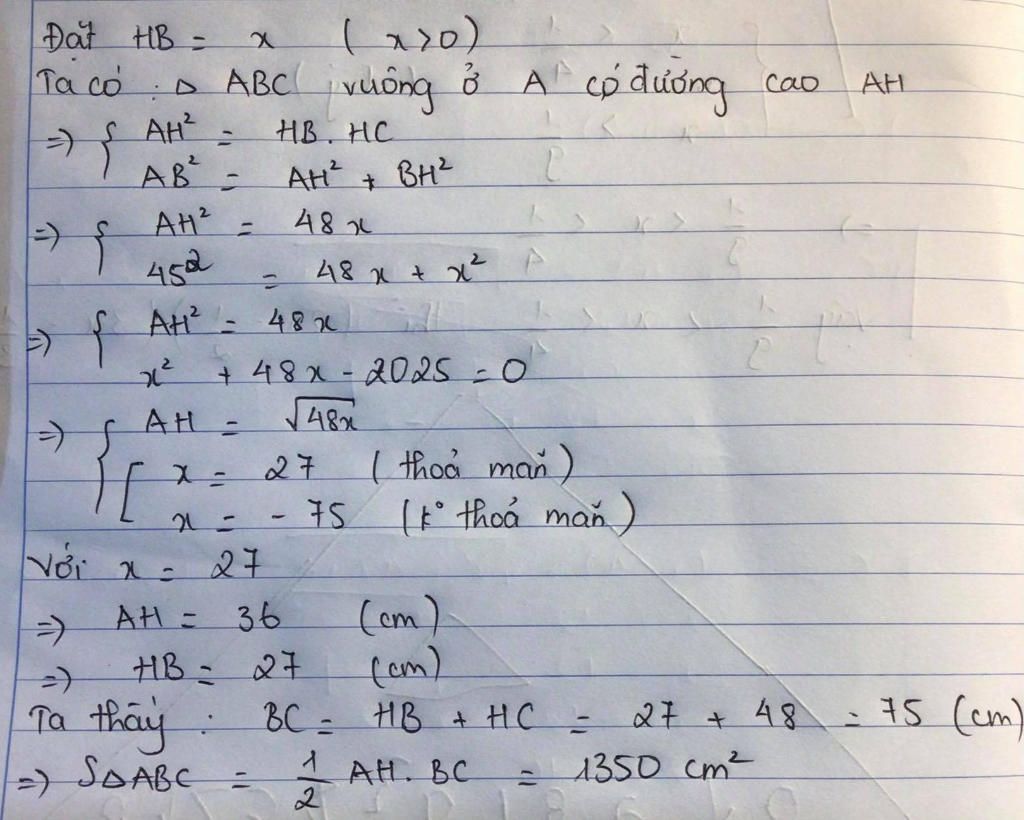 Đặt HB = x ( x > 0 )
Ta có : △ ABC vuông ở A có đường cao AH
=> { AH² = HB . HC
AB² = AH² + BH²
=> { AH² = 48x
45² = 48x + x²
=> { AH² = 48x
x² + 48x - 2025 = 0
=> { AH = √48x
[ x = 27 ( thoả mãn )
x = - 75 ( k° thoả mãn )
Với x = 27
=> AH = 36 (cm)
=> HB = 27 (cm)
Ta thấy : BC = HB + HC = 27 + 48 = 75 (cm)
=> S△ABC = 1/2 AH . BC = 1350 cm²